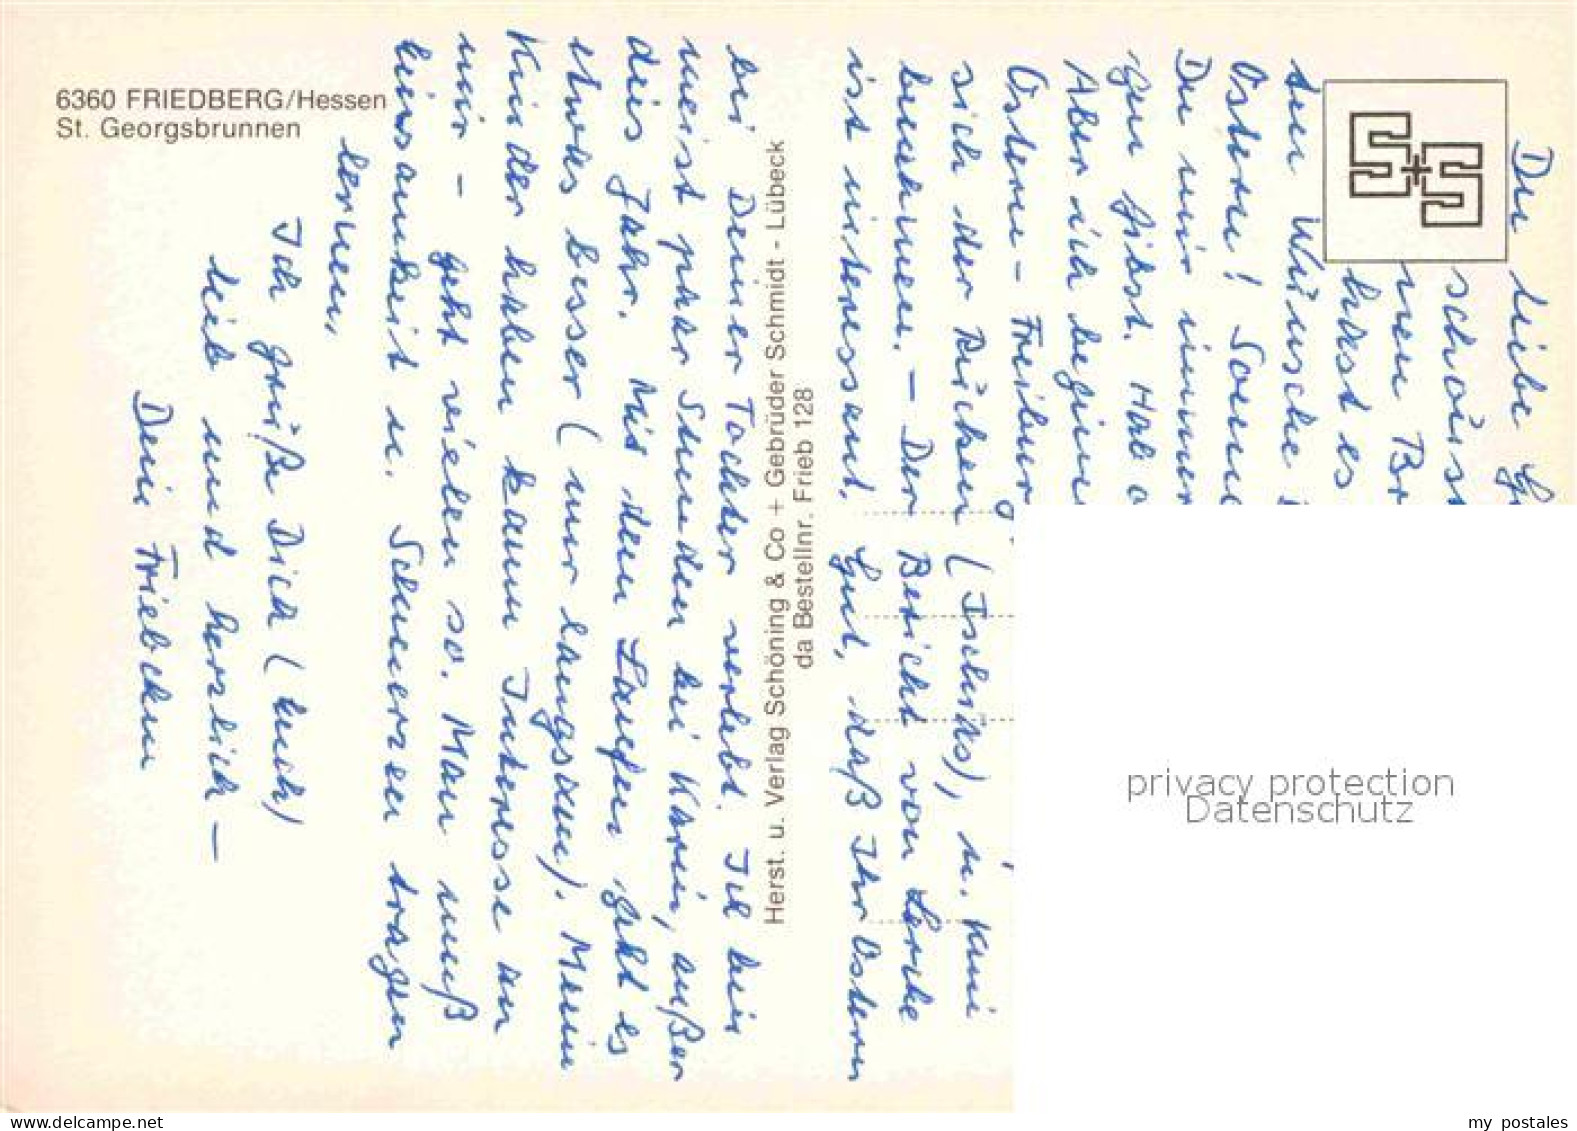 6360 FRIEDBERG/Hessen
St. Georgsbrunnen
Du liebe
schön
nen Br
hast es
den Wünsche
Ostern! Sonne
Du mir immer
gen gibst. Hab
Aber ich beginn
Ostern - Freiburg
sich der Rücken (Ischias), u. Knie
benehmen. - Der Bericht von
ist interessant. Gut, daß Ihr Ostern
bei Deiner Tochter verlebt. Ich bin
meist paar Stunden bei Karin, außer
dies Jahr. Mit dem Laufen geht es
etwas besser (nur langsam). Meine
Kinder haben kaum Interesse an
mir - geht vielen so. Man muß
Einsamkeit u. Schmerzen tragen
lernen.
Ich grüße Dich (Euch)
lieb und herzlich -
Dein Friebchen
Herst. u. Verlag Schöning & Co + Gebrüder Schmidt - Lübeck
da Bestellnr. Frieb 128
S+S
privacy protection
Datenschutz
www.delcampe.net
my_postales